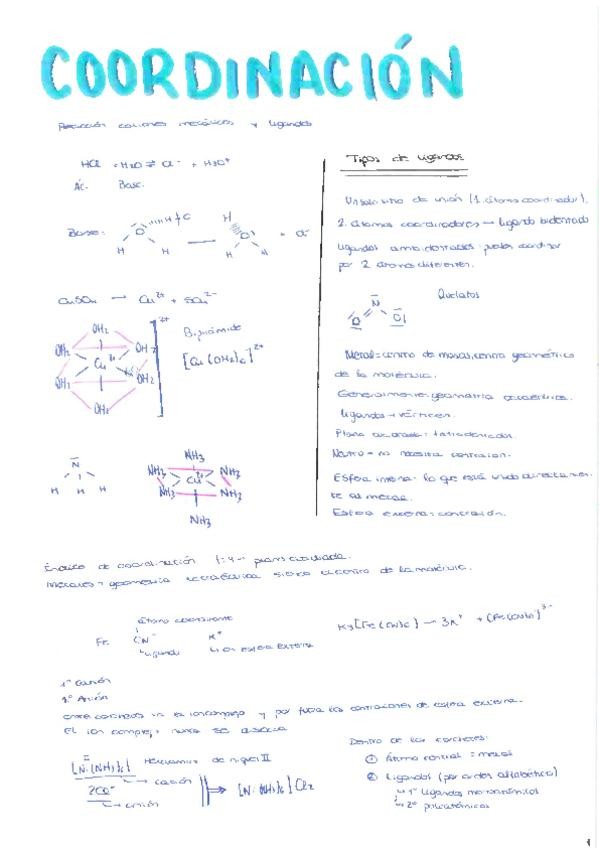 COORDINACIÓN
Reacción cationes metálicos y ligandos
HCl + H2O ⇌ Cl- + H3O+
Ác. Base.
Base:
O H H
H O H H + Cl-
CuSO4 → Cu2+ + SO4 2-
OH2
OH2 OH2
Cu2+
OH2 OH2
OH2
2+
Bipirámide
[Cu(OH2)6]2+
N
H H H
NH3
NH3 NH3
Cu2+
NH3 NH3
NH3
Tipos de ligandos
Un solo sitio de unión (1 átomo coordinador).
2 átomos coordinadores → ligando bidentado
Ligandos ambidentados: pueden coordinar
por 2 átomos diferentes.
Quelatos
N
O O|
Metal = centro de masas, centro geométrico
de la molécula.
Generalmente: geometría octaédrica.
Ligandos → vértices.
Plano cuadrada: tetradentados.
Neutro = no necesita
Esfera interna: lo que está unido directamen-
te al metal.
Esfera externa:
Índice de coordinación 4 → plano cuadrada.
Metales = geometría octaédrica de la molécula.
átomo coordinante
Fe CN- K+
ligando ion esfera externa
K3[Fe(CN)6] → 3K+ + [Fe(CN)6]3-
1º Catión
2º Anión
entre corchetes va el ion complejo y por fuera los de esfera externa.
El ion complejo nunca se
[Ni(NH3)6] Hexaamino de níquel II
→ catión
2Cl- → anión
→ [Ni(NH3)6]Cl2
Dentro de los corchetes:
① Átomo central = metal
② Ligandos (por orden alfabético)
1º ligandos monoatómicos
2º poliatómicos
1